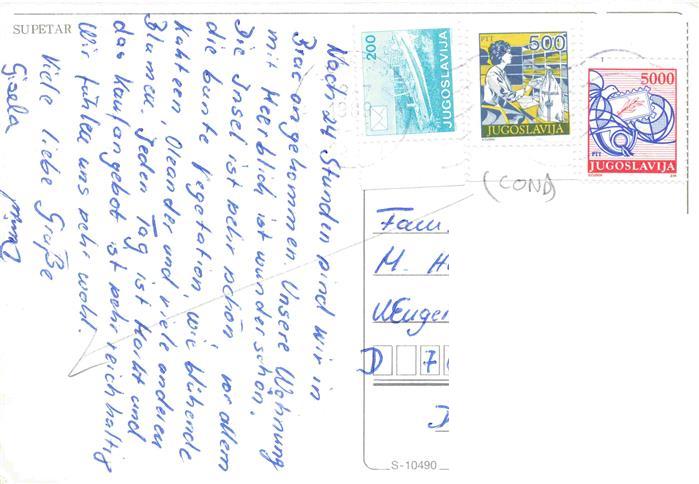 SUPETAR
Nach 24 Stunden sind wir in
Brač angekommen. Unsere Wohnung
mit Meerblick ist wunderschön.
Die Insel ist sehr schön vor allem
die bunte Vegetation, wie blühende
Kakteen, Oleander und viele anderen
Blumen. Jeden Tag ist Markt und
das Kaufangebot ist sehr reichhaltig
Wir fühlen uns sehr wohl.
Viele liebe Grüße
Gisela
200
JUGOSLAVIJA
PTT
500
JUGOSLAVIJA
5000
PTT
JUGOSLAVIJA
(COND
Fam.
M. H
Wenger
D 7
S-10490